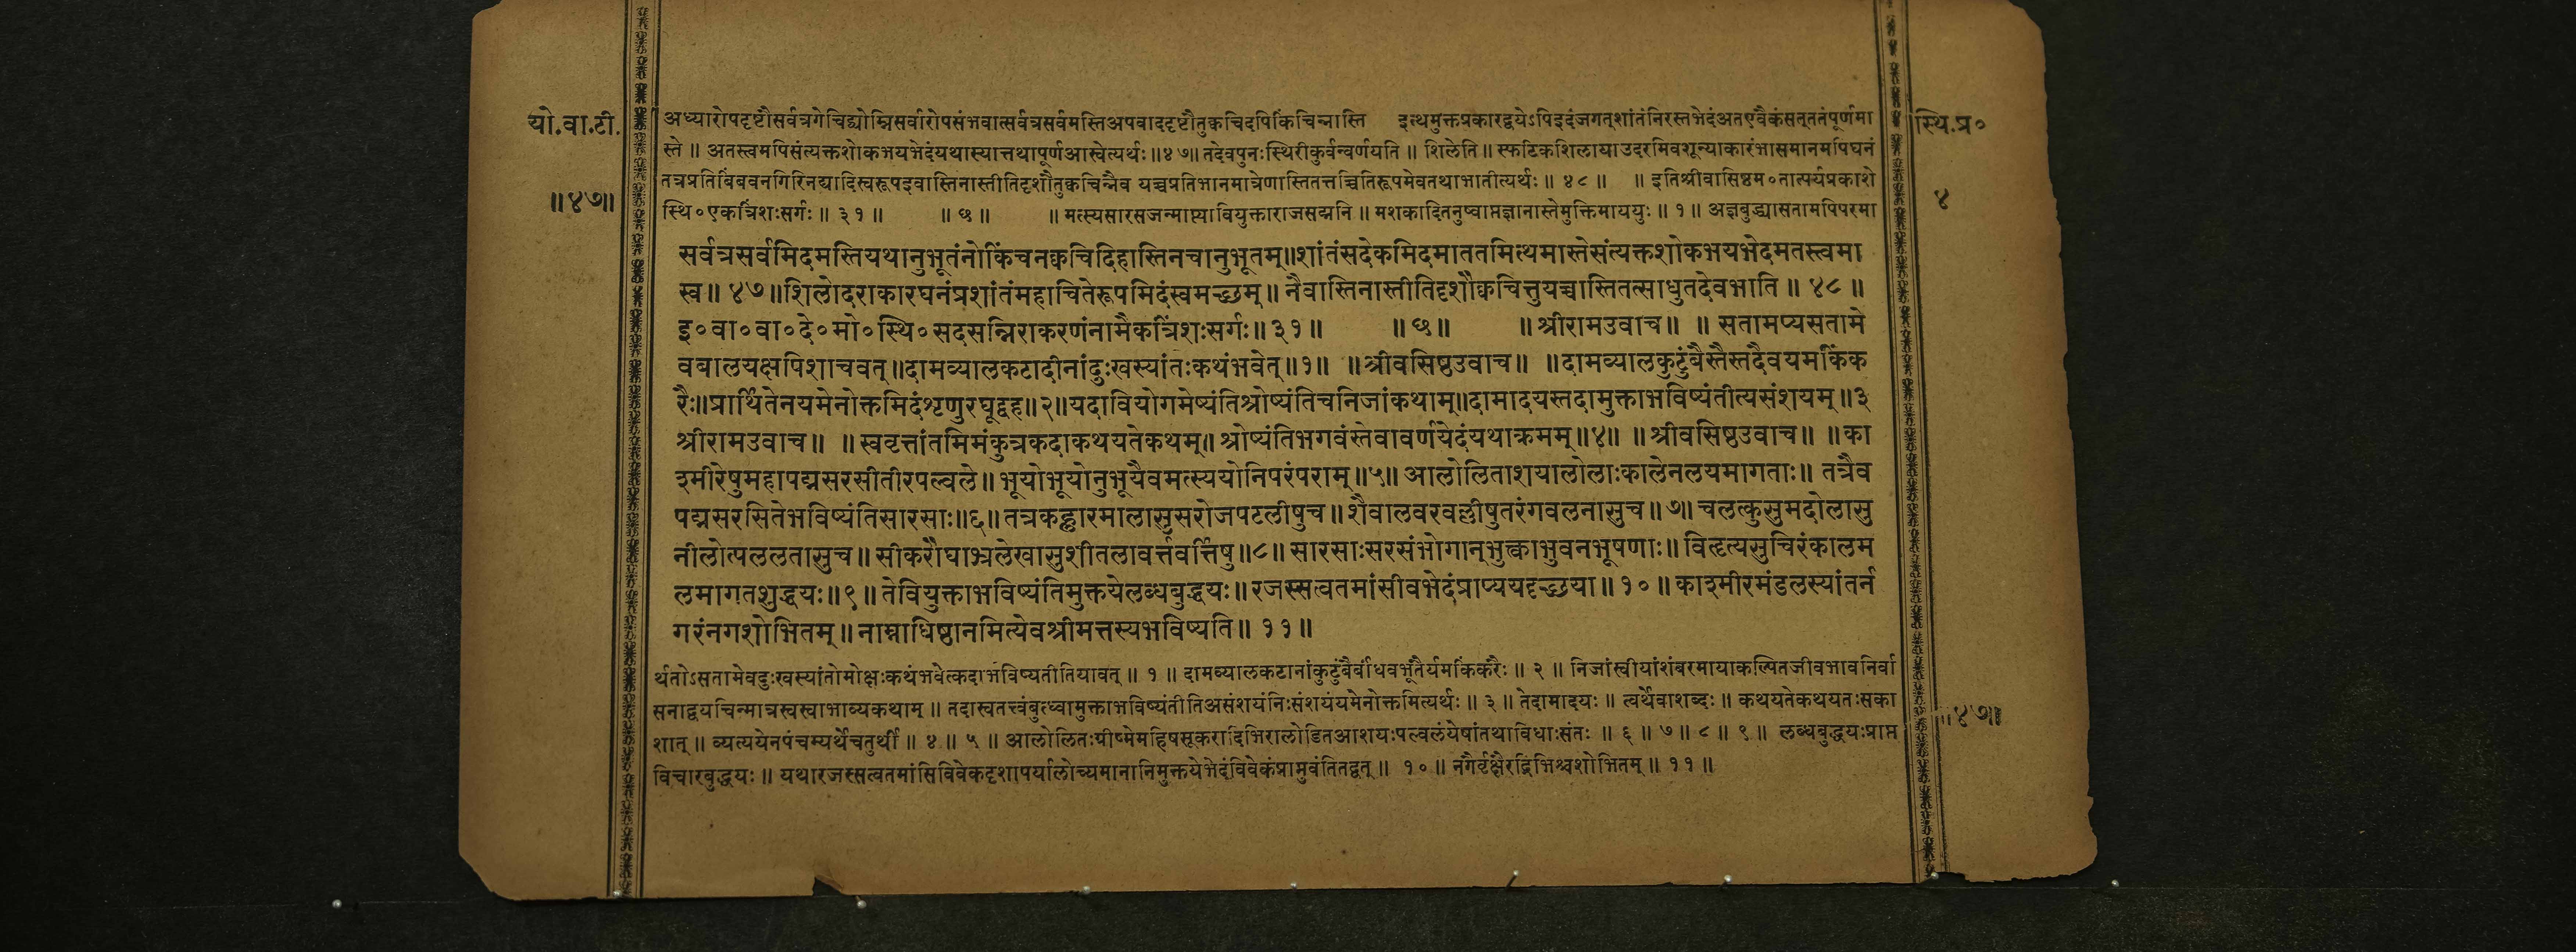 यो.वा.टी.
॥४७॥
स्थि.प्र०
४
अध्यारोपदृष्टौसर्वत्रगेचिद्व्योम्निसर्वारोपसंभवात्सर्वत्रसर्वमस्तिअपवाददृष्टौतुक्वचिदपिकिंचिन्नास्ति इत्थमुक्तप्रकारद्वयेऽपिइदंजगत्शांतंनिरस्तभेदंअतएवैकंसत्ततंपूर्णमा
स्ते ॥ अतस्त्वमपिसंत्यक्तशोकभयभेदंयथास्यात्तथापूर्णआस्वेत्यर्थः ॥४७॥ तदेवपुनःस्थिरीकुर्वन्वर्णयति ॥ शिलेति ॥ स्फटिकशिलायाउदरमिवशून्याकारंभासमानमपिघनं
तत्रप्रतिबिंबवनगिरिनद्यादिस्वरूपइवास्तिनास्तीतिदृशौतुक्वचिन्नैव यच्चप्रतिभानमात्रेणास्तितत्तच्चितिरूपमेवतथाभातीत्यर्थः ॥ ४८ ॥ ॥ इतिश्रीवासिष्ठम०तात्पर्यप्रकाशे
स्थि०एकत्रिंशःसर्गः ॥ ३१ ॥ ॥ छ ॥ ॥ मत्स्यसारसजन्माप्त्यावियुक्ताराजसद्मनि ॥ मशकादितनुष्वाप्तज्ञानास्तेमुक्तिमाययुः ॥ १ ॥ अज्ञबुद्ध्यासतामपिपरमा
सर्वत्रसर्वमिदमस्तियथानुभूतंनोकिंचनक्वचिदिहास्तिनचानुभूतम्॥शांतंसदेकमिदमाततमित्थमास्तेसंत्यक्तशोकभयभेदमतस्त्वमा
स्व॥ ४७॥शिलोदराकारघनंप्रशांतंमहाचितेरूपमिदंस्वमच्छम्॥ नैवास्तिनास्तीतिदृशौक्वचित्तुयच्चास्तितत्साधुतदेवभाति ॥ ४८ ॥
इ०वा०वा०दे०मो०स्थि०सदसन्निराकरणंनामैकत्रिंशःसर्गः॥३१॥ ॥छ॥ ॥श्रीरामउवाच॥ ॥ सतामप्यसतामे
वबालयक्षपिशाचवत्॥दामव्यालकटादीनांदुःखस्यांतःकथंभवेत्॥१॥ ॥श्रीवसिष्ठउवाच॥ ॥दामव्यालकुटुंबैस्तैस्तदैवयमकिंक
रैः॥प्रार्थितेनयमेनोक्तमिदंशृणुरघूद्वह॥२॥यदावियोगमेष्यंतिश्रोष्यंतिचनिजांकथाम्॥दामादयस्तदामुक्ताभविष्यंतीत्यसंशयम्॥३
श्रीरामउवाच॥ ॥स्ववृत्तांतमिमंकुत्रकदाकथयतेकथम्॥श्रोष्यंतिभगवंस्तेवावर्णयेदंयथाक्रमम्॥४॥ ॥श्रीवसिष्ठउवाच॥ ॥का
श्मीरेषुमहापद्मसरसीतीरपल्वले॥भूयोभूयोनुभूयैवमत्स्ययोनिपरंपराम्॥५॥आलोलिताशयालोलाःकालेनलयमागताः॥ तत्रैव
पद्मसरसितेभविष्यंतिसारसाः॥६॥तत्रकह्लारमालासुसरोजपटलीषुच॥शैवालवरवल्लीषुतरंगवलनासुच॥७॥चलत्कुसुमदोलासु
नीलोत्पललतासुच॥सीकरौघाभ्रलेखासुशीतलावर्त्तवर्त्तिषु॥८॥सारसाःसरसंभोगान्भुक्त्वाभुवनभूषणाः॥विहृत्यसुचिरंकालम
लमागतशुद्धयः॥९॥तेवियुक्ताभविष्यंतिमुक्तयेलब्धबुद्धयः॥रजस्सत्वतमांसीवभेदंप्राप्ययदृच्छया॥१०॥काश्मीरमंडलस्यांतर्न
गरंनगशोभितम्॥नाम्नाधिष्ठानमित्येवश्रीमत्तस्यभविष्यति॥११॥
र्थतोऽसतामेवदुःखस्यांतोमोक्षःकथंभवेत्कदाभविष्यतीतियावत् ॥ १ ॥ दामव्यालकटानांकुटुंबैर्बांधवभूतैर्यमकिंकरैः ॥ २ ॥ निजांस्वीयांशंबरमायाकल्पितजीवभावनिर्वा
सनाद्वयचिन्मात्रस्वस्वाभाव्यकथाम् ॥ तदास्वतत्त्वंबुध्वामुक्ताभविष्यंतीतिअसंशयंनिःसंशयंयमेनोक्तमित्यर्थः ॥ ३ ॥ तेदामादयः ॥ त्वर्थेवाशब्दः ॥ कथयतेकथयतःसका
शात् ॥ व्यत्ययेनपंचम्यर्थेचतुर्थी ॥ ४ ॥ ५ ॥ आलोलितःग्रीष्मेमहिषसूकरादिभिरालोडितआशयःपल्वलंयेषांतथाविधाःसंतः ॥ ६ ॥ ७ ॥ ८ ॥ ९ ॥ लब्धबुद्धयःप्राप्त
विचारबुद्धयः ॥ यथारजस्सत्वतमांसिविवेकदृशापर्यालोच्यमानानिमुक्तयेभेदंविवेकंप्राप्नुवंतितद्वत् ॥ १० ॥ नगैर्वृक्षैरद्रिभिश्चशोभितम् ॥ ११ ॥
॥४७॥